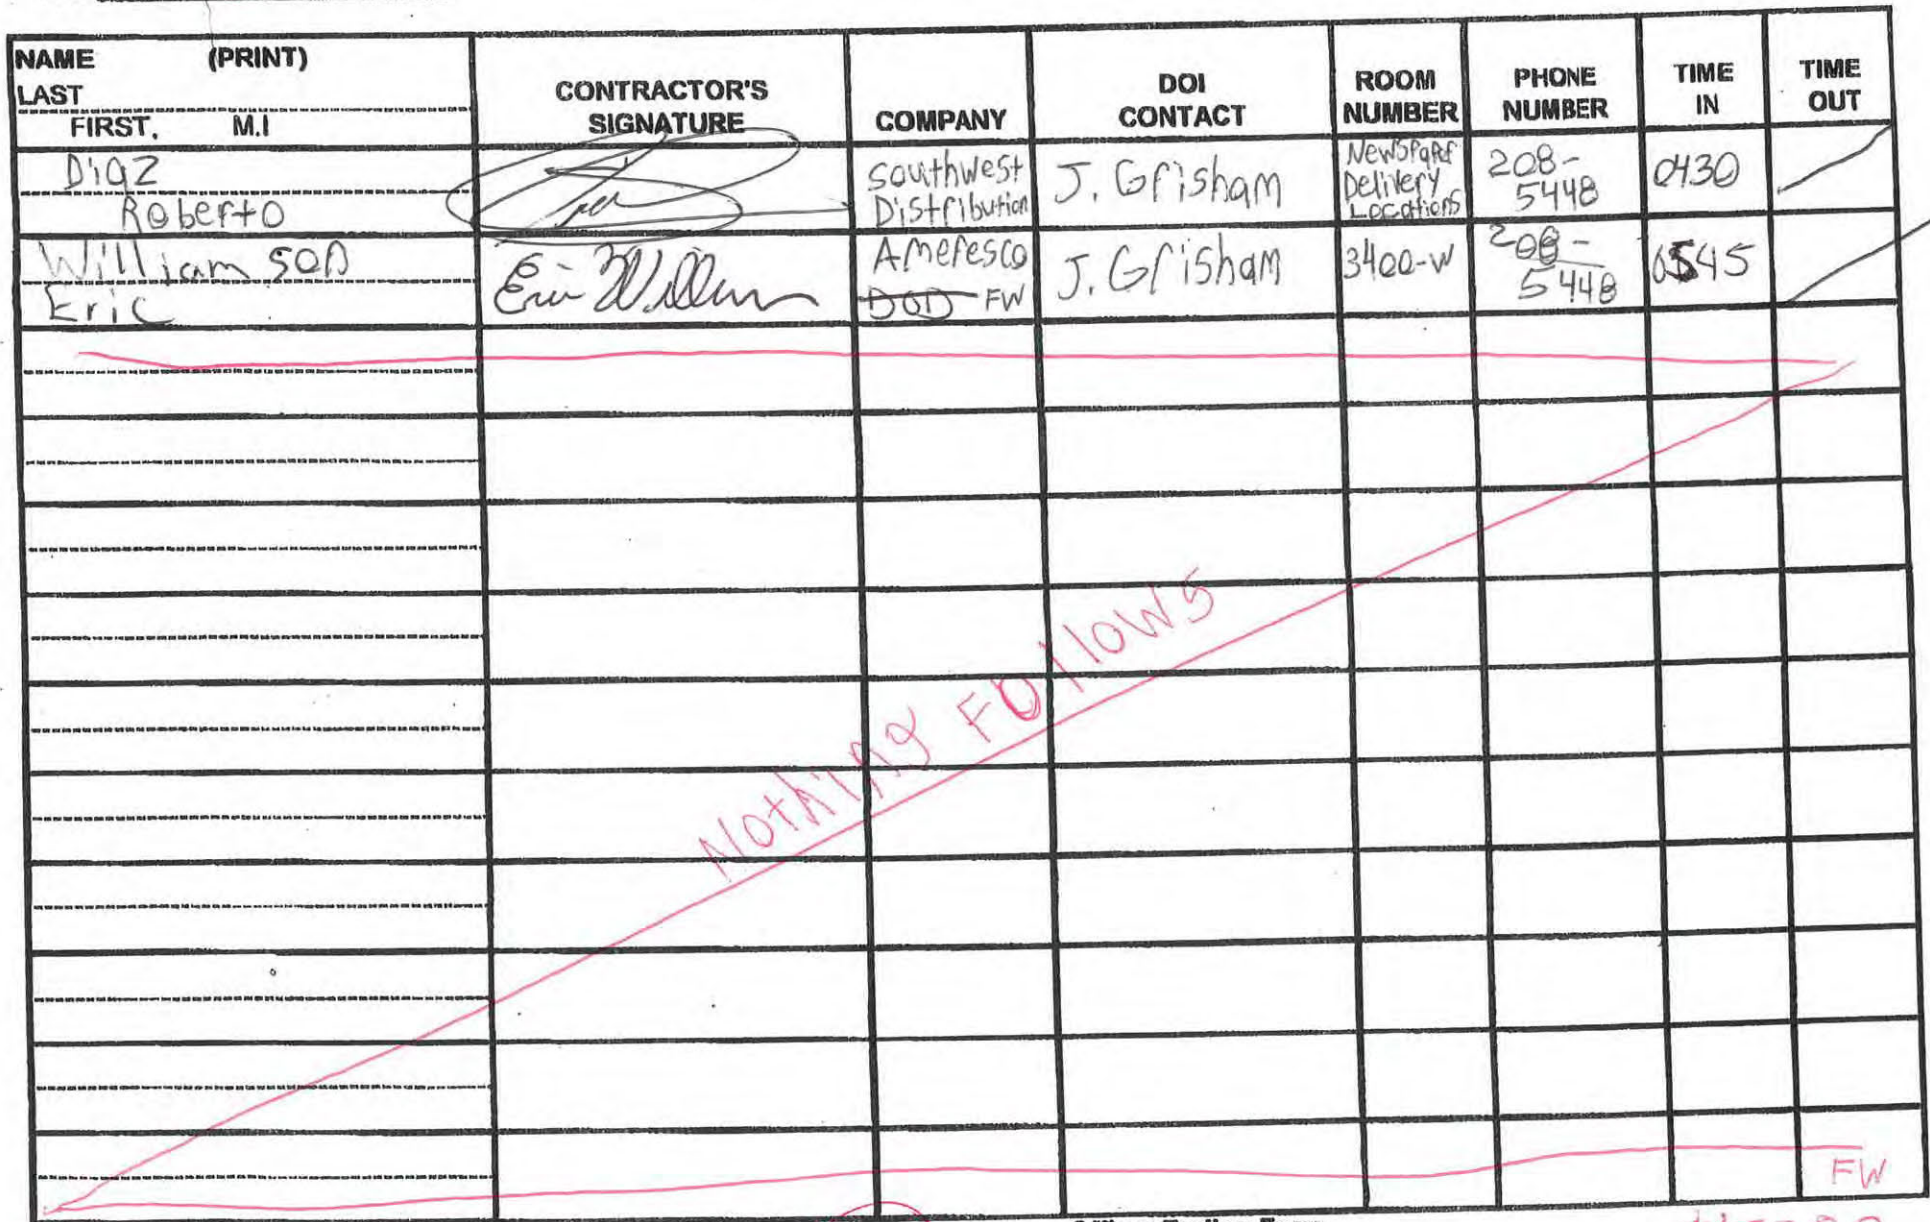 NAME (PRINT)
LAST
FIRST, M.I
CONTRACTOR'S
SIGNATURE
COMPANY
DOI
CONTACT
ROOM
NUMBER
PHONE
NUMBER
TIME
IN
TIME
OUT
Diaz
Roberto
Southwest
Distribution
J. Grisham
Newspaper
Delivery
Locations
208-
5448
0430
Williamson
Eric
Eric Williamson
Ameresco
DOD FW
J. Grisham
3400-W
208-
5448
0545
Nothing Follows
FW